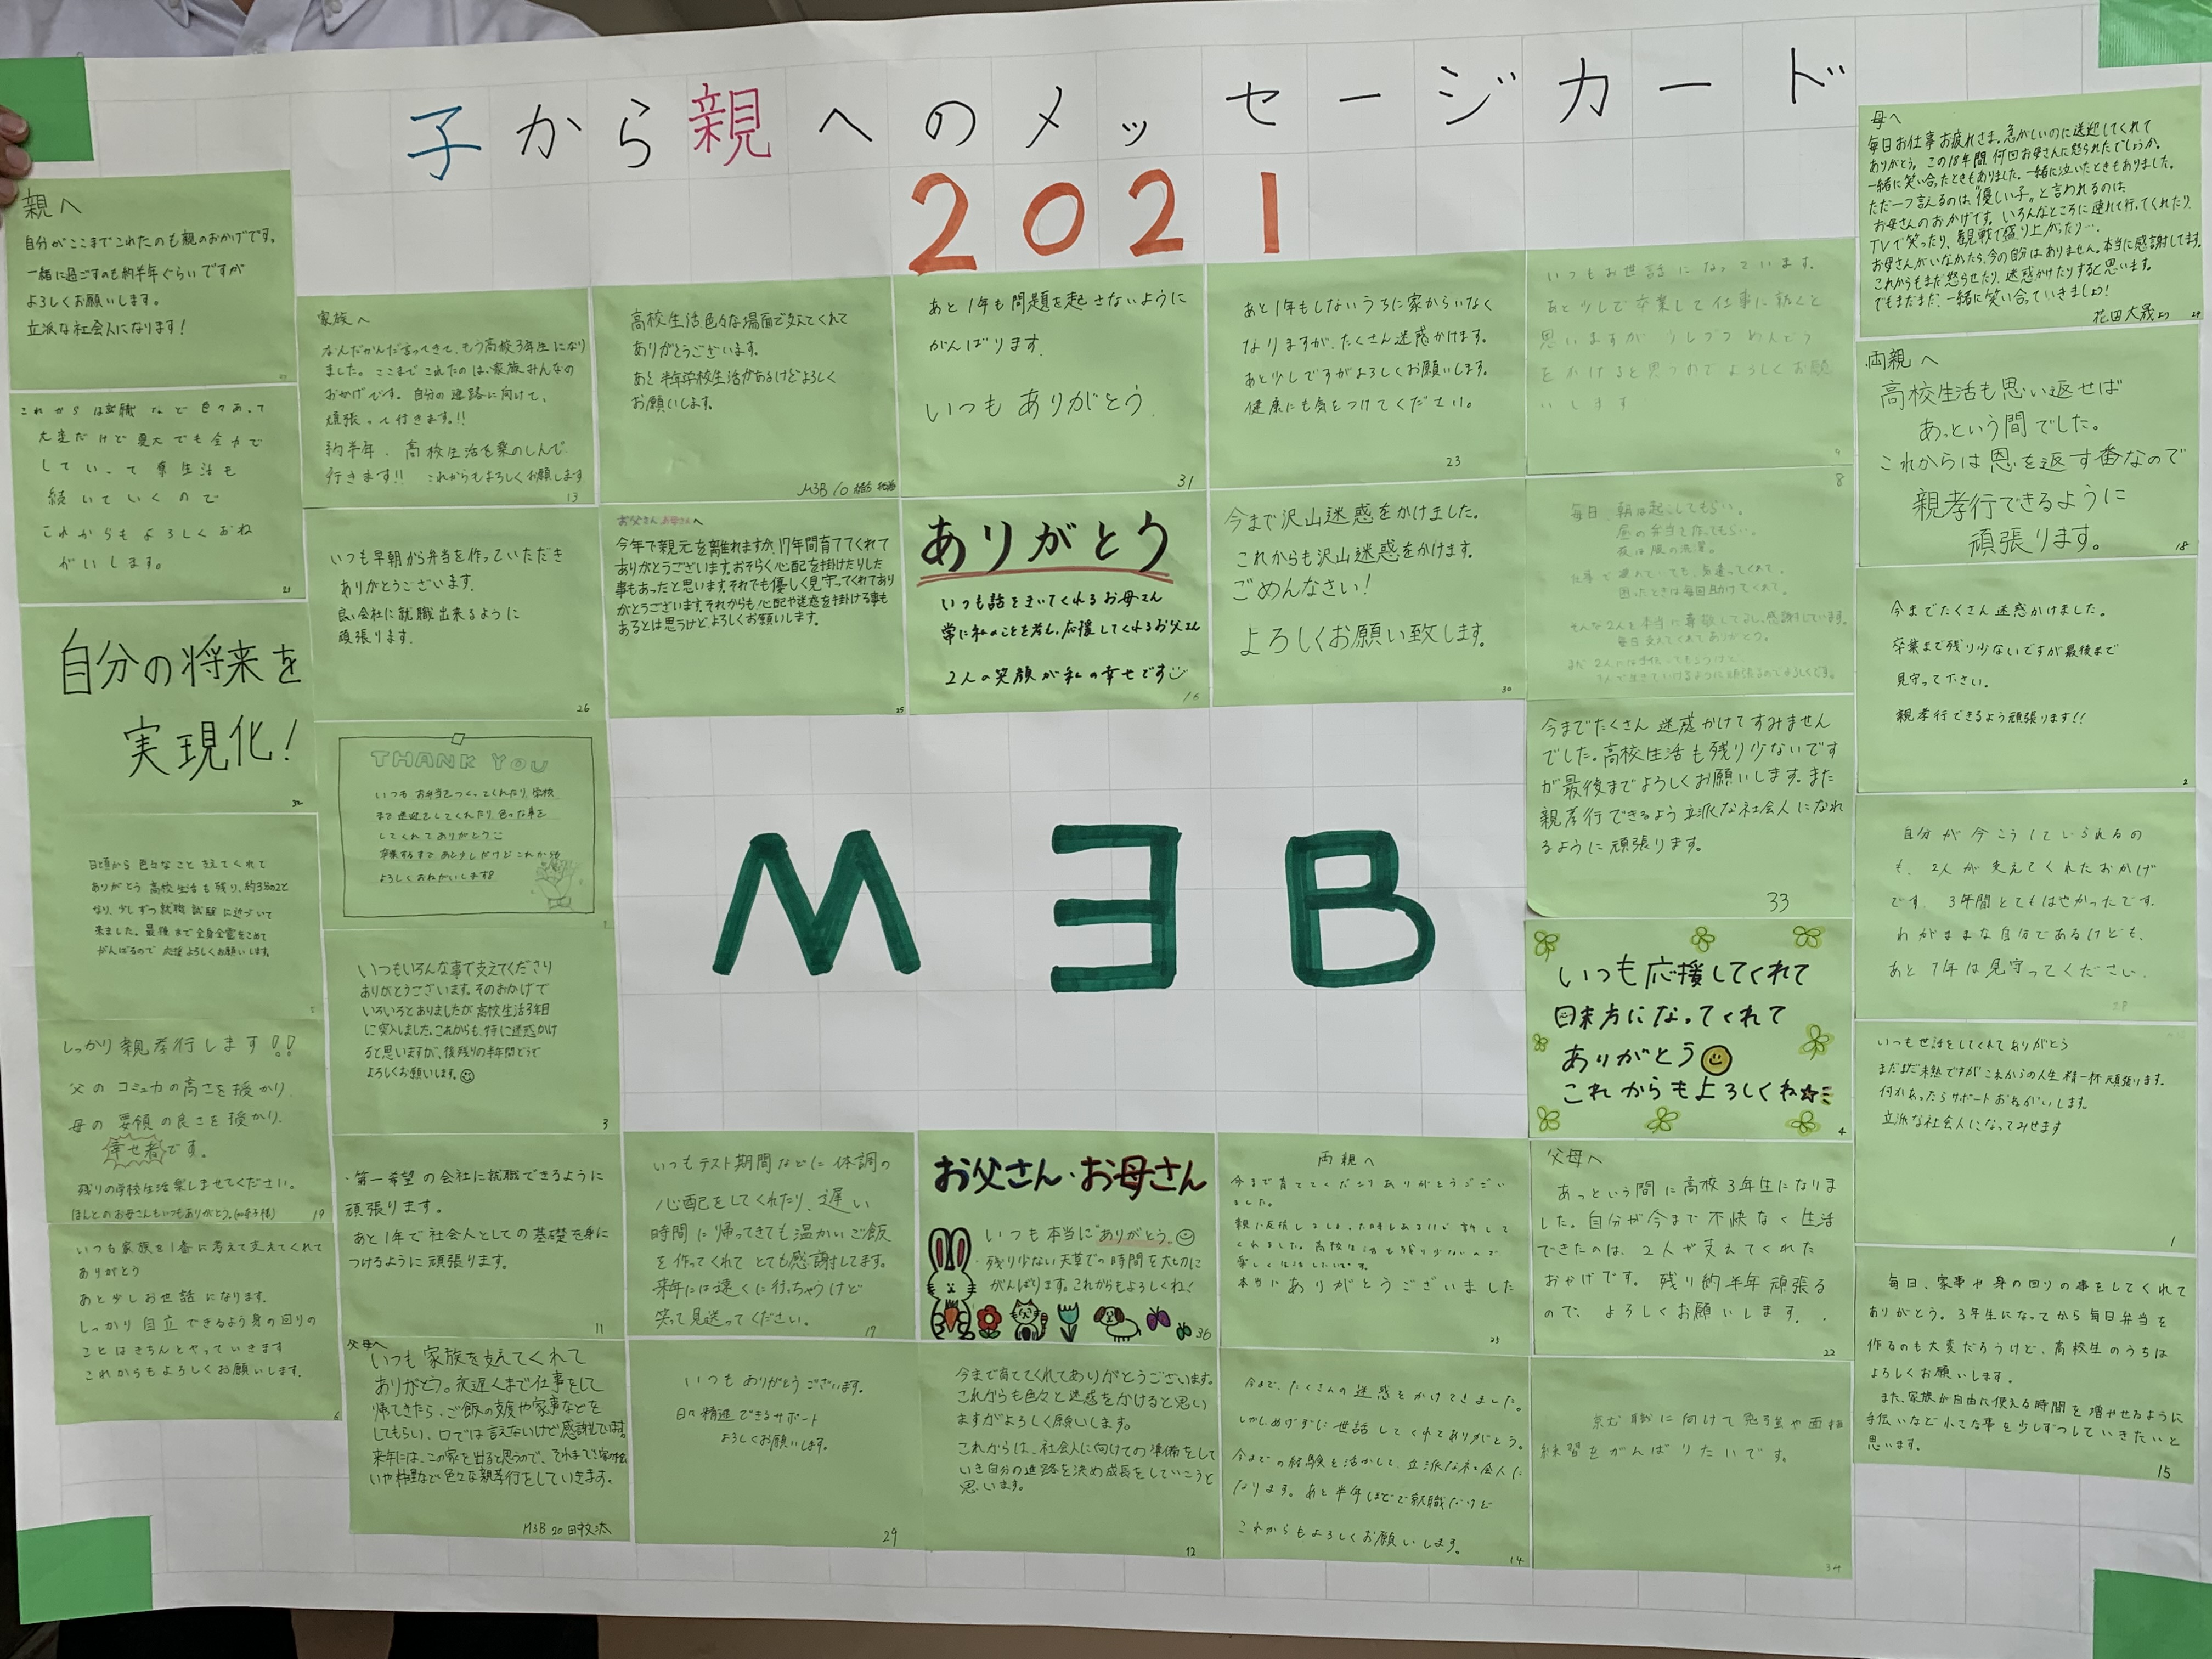 子から親へのメッセージカード
2021
M3B
親へ
自分がここまでこれたのも親のおかげです。
一緒に過ごすのも約半年ぐらいですが
よろしくお願いします。
立派な社会人になります!
これからは就職など色々あって
大変だけど
していって
続いていくので
これからもよろしくおね
がいします。
21
自分の将来を
実現化!
32
日頃から色々なこと支えてくれて
ありがとう 高校生活も残り、約
なり、少しずつ就職試験に近づいて
来ました。最後まで全身全霊をこめて
がんばるので応援よろしくお願いします。
5
しっかり親孝行します!!
父のコミュ力の高さを授かり
母の要領の良さを授かり
幸せ者です。
残りの学校生活楽しませてください。
ほんとのお母さんもいつもありがとう。
19
いつも家族を1番に考えて支えてくれて
ありがとう
あと少しお世話になります。
しっかり自立できるよう身の回りの
ことはきちんとやっていきます
これからもよろしくお願いします。
6
家族へ
なんだかんだ言ってきて、もう高校3年生になり
ました。ここまでこれたのは、家族みんなの
おかげです。自分の進路に向けて、
頑張って行きます!!
約半年、高校生活を楽のしんで
行きます!! これからもよろしくお願します
13
いつも早朝から弁当を作っていただき
ありがとうございます。
良い会社に就職出来るように
頑張ります。
26
THANK YOU
いつもお弁当をつくってくれたり、学校
まで送迎をしてくれたり、色々な事を
してくれてありがとう
卒業するまであと少しだけどこれからも
よろしくおねがいします
いつもいろんな事で支えてくださり
ありがとうございます。そのおかげで
いろいろとありましたが高校生活3年目
に突入しました。これからも、特に迷惑かけ
ると思いますが、後残りの半年間どうぞ
よろしくお願いします。
3
・第一希望の会社に就職できるように
頑張ります。
あと1年で社会人としての基礎を身に
つけるように頑張ります。
11
父母へ
いつも家族を支えてくれて
ありがとう。夜遅くまで仕事をして
帰てきたら、ご飯の支度や家事などを
してもらい、口では言えないけど感謝しています。
来年には、この家を出ると思うので、それまで
色々な親孝行をしていきます。
M3B 20
高校生活、色々な場面で支えてくれて
ありがとうございます。
あと半年学校生活があるけどよろしく
お願いします。
M3B 10
お父さんお母さんへ
今年で親元を離れますが、17年間育ててくれて
ありがとうございます。おそらく心配を掛けたりした
事もあったと思います。それでも優しく見守ってくれてあり
がとうございます。それからも心配や迷惑を掛ける事も
あるとは思うけど、よろしくお願いします。
あと1年も問題を起さないように
がんばります。
いつもありがとう。
31
ありがとう
いつも話をきいてくれるお母さん
常に私のことを考え、応援してくれるお父さん
2人の笑顔が私の幸せです
16
あと1年もしないうちに家からいなく
なりますが、たくさん迷惑かけます。
あと少しですがよろしくお願いします。
健康にも気をつけてください。
23
今まで沢山迷惑をかけました。
これからも沢山迷惑をかけます。
ごめんなさい!
よろしくお願い致します。
30
いつもお世話になっています。
あと少しで卒業して仕事に就くと
思いますが 少しづつ めんどう
をかけると思うのでよろしくお願
いします
9
8
毎日、朝は起こしてもらい、
昼の弁当を作ってもらい、
夜は服の洗濯。
困ったときは毎回助けてくれて。
今までたくさん迷惑かけてすみません
でした。高校生活も残り少ないです
が最後までよろしくお願いします。また
親孝行できるよう立派な社会人になれ
るように頑張ります。
33
いつも応援してくれて
味方になってくれて
ありがとう
これからもよろしくね☆
4
いつもテスト期間などに体調の
心配をしてくれたり、遅い
時間に帰ってきても温かいご飯
を作ってくれてとても感謝してます。
来年には遠くに行っちゃうけど
笑って見送ってください。
17
お父さん・お母さん
いつも本当に"ありがとう。
残り少ない天草での時間を大切に
がんばります。これからもよろしくね!
36
両親へ
今まで育ててくださりありがとうござい
ました。
くれました。高校生活も残り少ないので
楽しく生活したいです。
本当にありがとうございました
父母へ
あっという間に高校3年生になりま
した。自分が今まで不快なく生活
できたのは、2人が支えてくれた
おかげです。残り約半年頑張る
ので、よろしくお願いします。
22
いつもありがとうございます。
日々精進できるサポート
よろしくお願いします。
29
今まで育ててくれてありがとうございます。
これからも色々と迷惑をかけると思い
ますがよろしく願いします。
これからは、社会人に向けての準備をして
いき自分の進路を決め成長をしていこうと
思います。
12
今まで、たくさんの迷惑をかけてきました。
しかしあげずに世話してくれてありがとう。
今までの経験を活かして、立派な社会人に
なります。あと半年ほどで就職だけど
これからもよろしくお願いします。
14
就職に向けて勉強や面接
練習をがんばりたいです。
34
母へ
毎日お仕事お疲れさま。急がしいのに送迎してくれて
ありがとう。この18年間、何回お母さんに怒られたでしょうか。
一緒に笑い合ったときもありました。一緒に泣いたときもありました。
ただ一つ言えるのは、"優しい子。"と言われるのは、
お母さんのおかげです。いろんなところに連れて行ってくれたり、
TVで笑ったり、観戦で盛り上がったり…。
お母さんがいなかったら、今の自分はありません。本当に感謝してます。
これからもまだ怒らせたり、迷惑かけたりすると思います。
でもまだまだ、一緒に笑い合っていきましょう!
花田大晟より
両親へ
高校生活も思い返せば
あっという間でした。
これからは恩を返す番なので
親孝行できるように
頑張ります。
18
今までたくさん迷惑かけました。
卒業まで残り少ないですが最後まで
見守って下さい。
親孝行できるよう頑張ります!!
2
自分が今こうしていられるの
も、2人が支えてくれたおかげ
です。3年間とてもはやかったです。
わがままな自分であるけども、
あと1年は見守ってください。
28
いつも世話をしてくれてありがとう
まだまだ未熟ですがこれからの人生精一杯頑張ります。
何かあったらサポートおねがいします。
立派な社会人になってみせます
1
毎日、家事や身の回りの事をしてくれて
ありがとう。3年生になってから毎日弁当を
作るのも大変だろうけど、高校生のうちは
よろしくお願いします。
また、家族が自由に使える時間を増やせるように
手伝いなど小さな事を少しずつしていきたいと
思います。
15